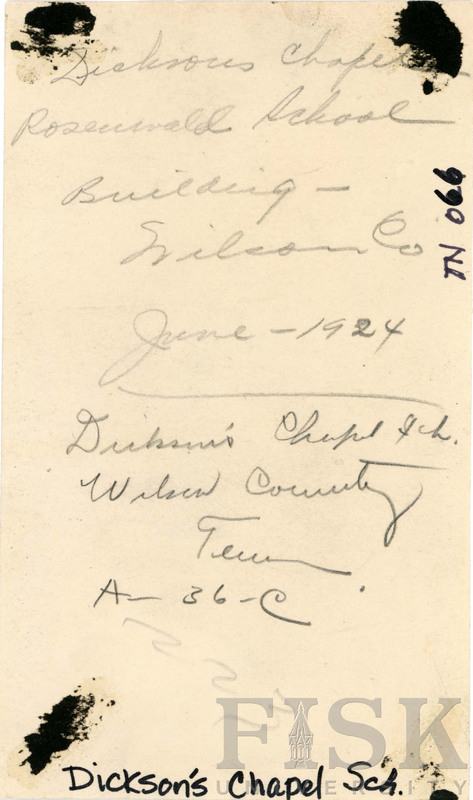 Dicksons Chapel
Rosenwald School
Building -
Wilson Co
June - 1924
Dickson's Chapel Sch.
Wilson County
Tenn
A- 36-C
TN 066
FISK
UNIVERSITY
Dickson's Chapel Sch.